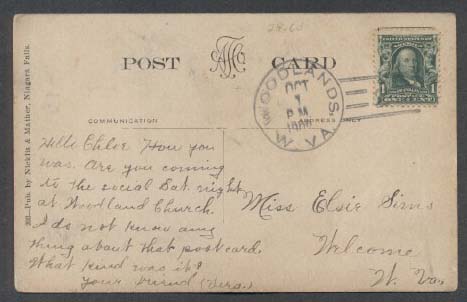 28-60
POST CARD
COMMUNICATION
ADDRESS ONLY
WOODLANDS,
OCT
7
P.M.
W. VA.
1
ONE CENT
Pub. by Nicklis & Mather, Niagara Falls.
Hello Chloe How you
was. Are you coming
to the social Sat. night
at Woodland Church.
I do not know any
thing about that postcard.
What kind was it?
Your Friend (Vera.)
Miss Elsie Sims
Welcome
W. Va.